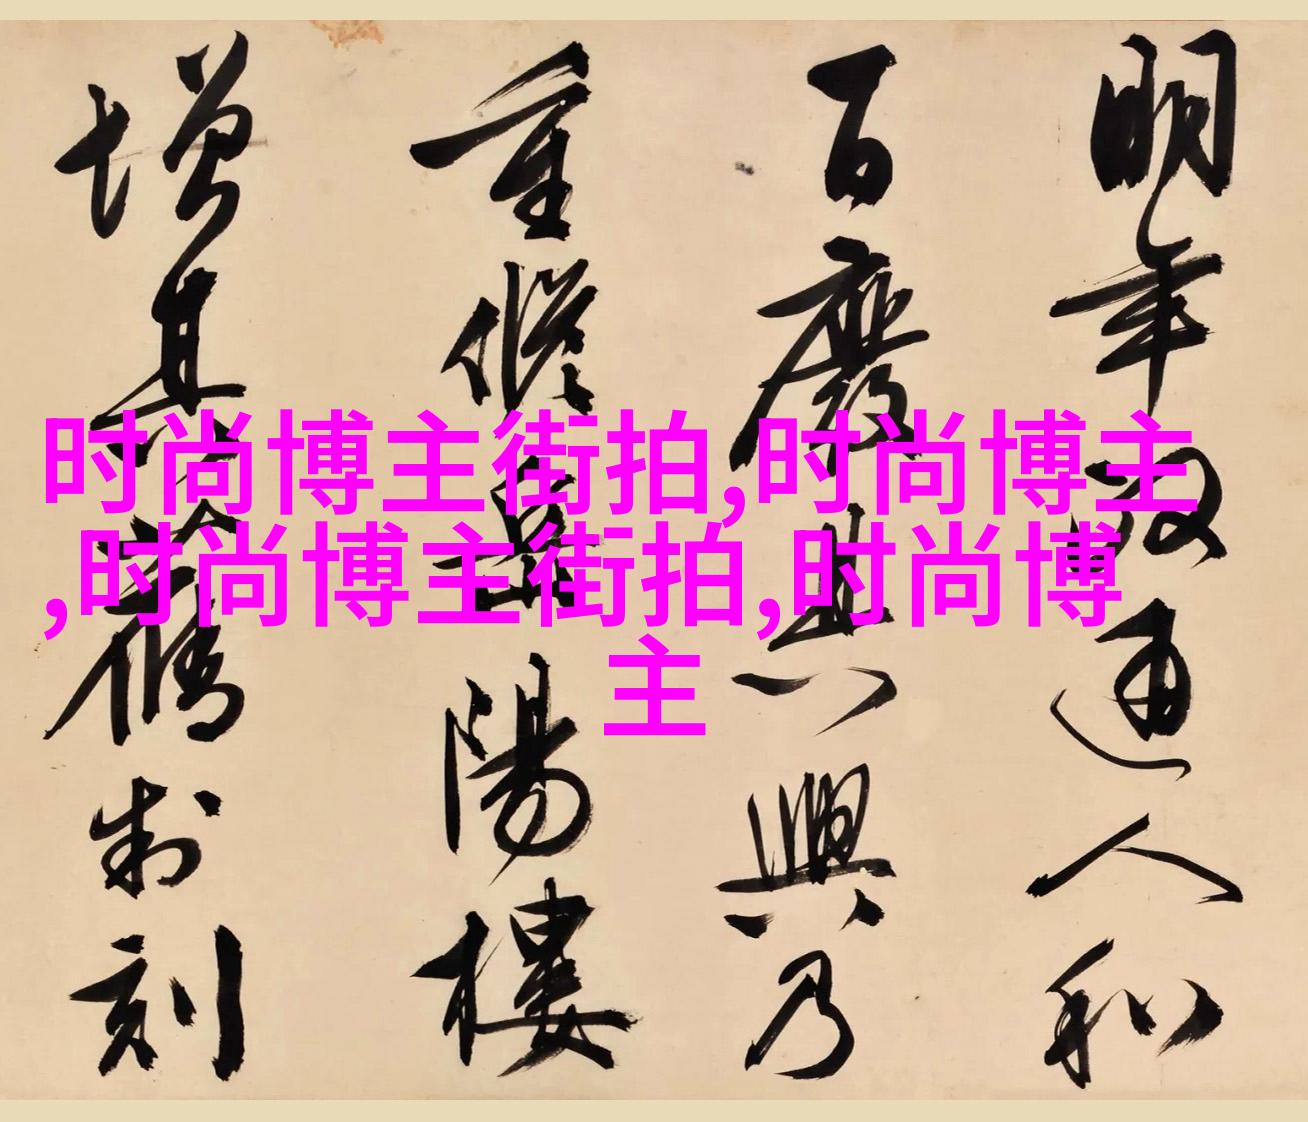 明年政通人和
百廢具興乃
重脩岳陽樓
增其舊制刻
时尚博主街拍,时尚博主
,时尚博主街拍,时尚博
主